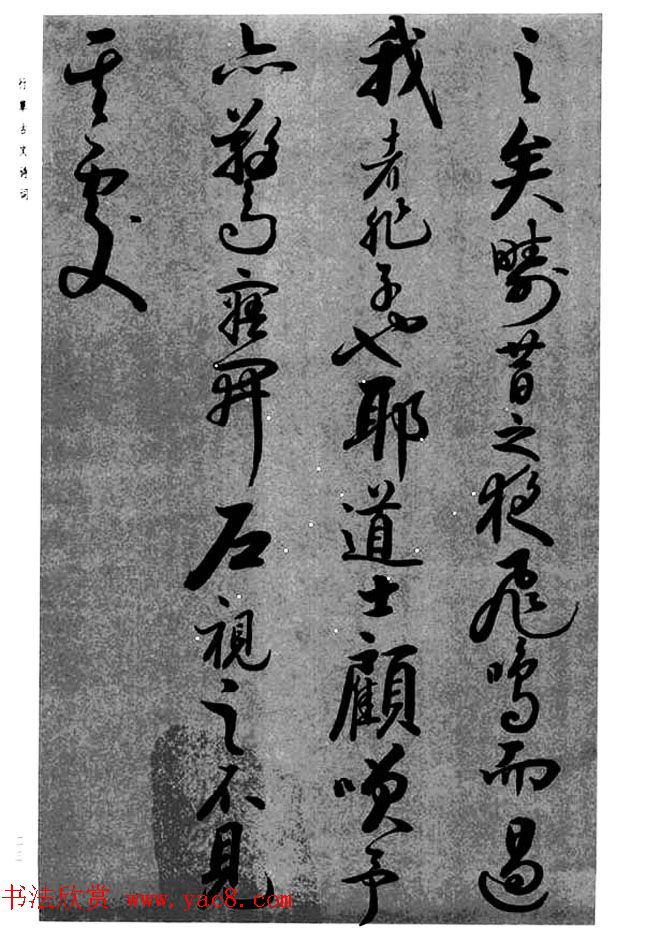 之矣疇昔之夜飛鳴而過
我者非子也耶道士顧咲予
亦驚寤開戶視之不見
其處
行草古文诗词
书法欣赏 www.yac8.com